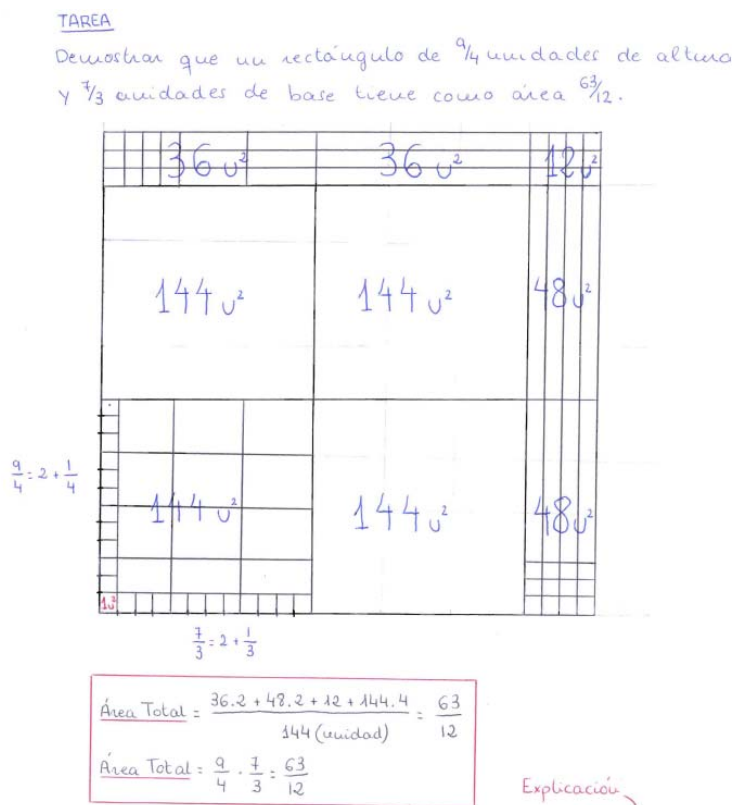 TAREA
Demostrar que un rectángulo de 9/4 unidades de altura
y 7/3 unidades de base tiene como área 63/12.
36 u² 36 u² 12 u²
144 u² 144 u² 48 u²
9/4 = 2 + 1/4
144 u² 144 u² 48 u²
1u²
7/3 = 2 + 1/3
Área Total = 36.2 + 48.2 + 12 + 144.4 / 144 (unidad) = 63/12
Área Total = 9/4 . 7/3 = 63/12
Explicación